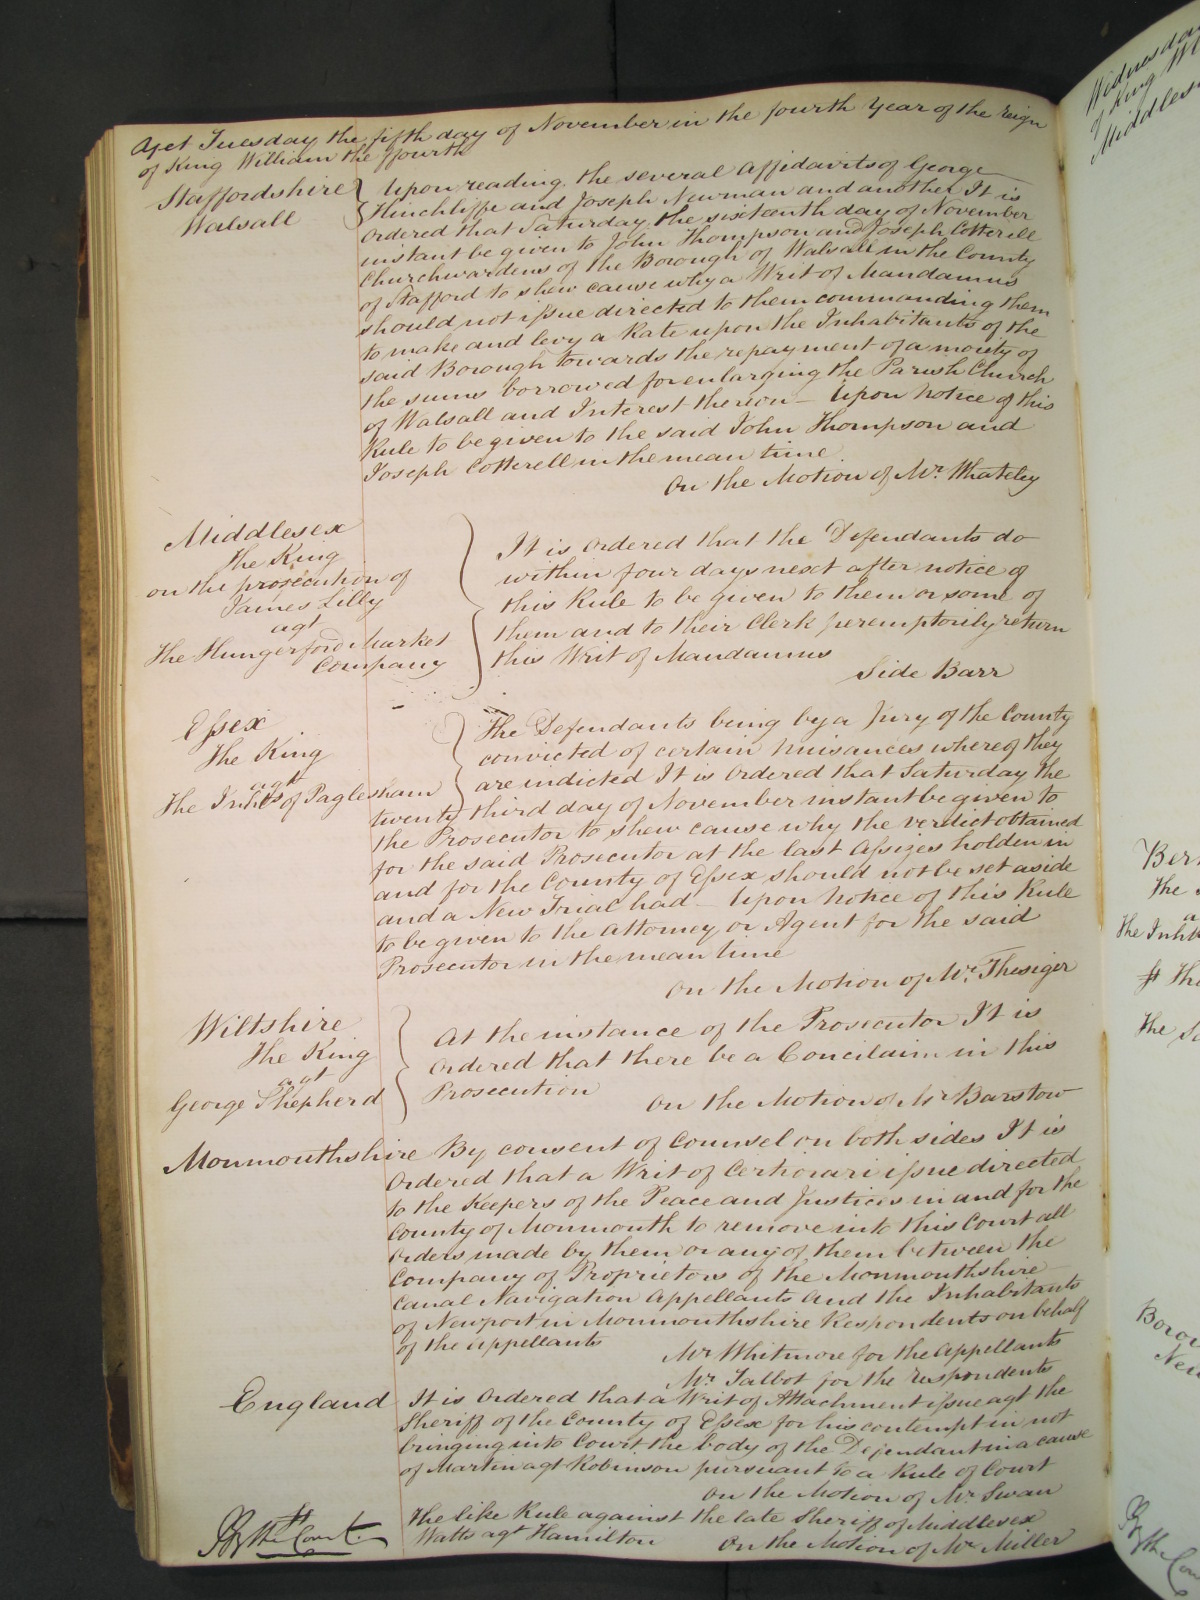 Yet Tuesday the fifth day of November in the fourth Year of the reign
of King William the ffourth
Staffordshire
Walsall
Upon reading the several affidavits of George
Hinchliffe and Joseph Newman and another It is
ordered that Saturday the sixteenth day of November
instant be given to John Thompson and Joseph Cotterell
Churchwardens of the Borough of Walsall in the County
of Stafford to shew cause why a Writ of Mandamus
should not issue directed to them commanding them
to make and levy a Rate upon the Inhabitants of the
said Borough towards the repayment of a moiety of
the sums borrowed for enlarging the Parish Church
of Walsall and Interest thereon — Upon notice of this
Rule to be given to the said John Thompson and
Joseph Cotterell in the mean time
On the Motion of Mr. Whateley
Middlesex
The King
on the prosecution of
James Lilly
agt
The Hungerford Market
Company
It is ordered that the Defendants do
within four days next after notice of
this Rule to be given to them or some of
them and to their Clerk peremptorily return
this Writ of Mandamus
Side Barr
Essex
The King
agt
The Inhts of Paglesham
The Defendants being by a Jury of the County
convicted of certain nuisances whereof they
are indicted It is ordered that Saturday the
twenty third day of November instant be given to
the Prosecutor to shew cause why the verdict obtained
for the said Prosecutor at the last Assizes holden in
and for the County of Essex should not be set aside
and a New Trial had — Upon notice of this Rule
to be given to the Attorney or Agent for the said
Prosecutor in the mean time
On the Motion of Mr. Thesiger
Wiltshire
The King
agt
George Shepherd
At the instance of the Prosecutor It is
ordered that there be a Concilaim in this
Prosecution
On the Motion of Mr Barstow
Monmouthshire
By consent of Counsel on both sides It is
ordered that a Writ of Certiorari issue directed
to the Keepers of the Peace and Justices in and for the
County of Monmouth to remove into this Court all
orders made by them or any of them between the
Company of Proprietors of the Monmouthshire
Canal Navigation Appellants and the Inhabitants
of Newport in Monmouthshire Respondents on behalf
of the appellants
Mr Whitmore for the appellants
Mr. Talbot for the respondents
England
It is ordered that a Writ of Attachment issue agt the
Sheriff of the County of Essex for his contempt in not
bringing into Court the body of the Defendant in a cause
of Martin agt Robinson pursuant to a Rule of Court
On the Motion of Mr. Swan
The like Rule against the late Sheriff of Middlesex
Watts agt Hamilton
On the Motion of Mr. Miller
By the Court
Wednesday
of King
Middlesex
The
The